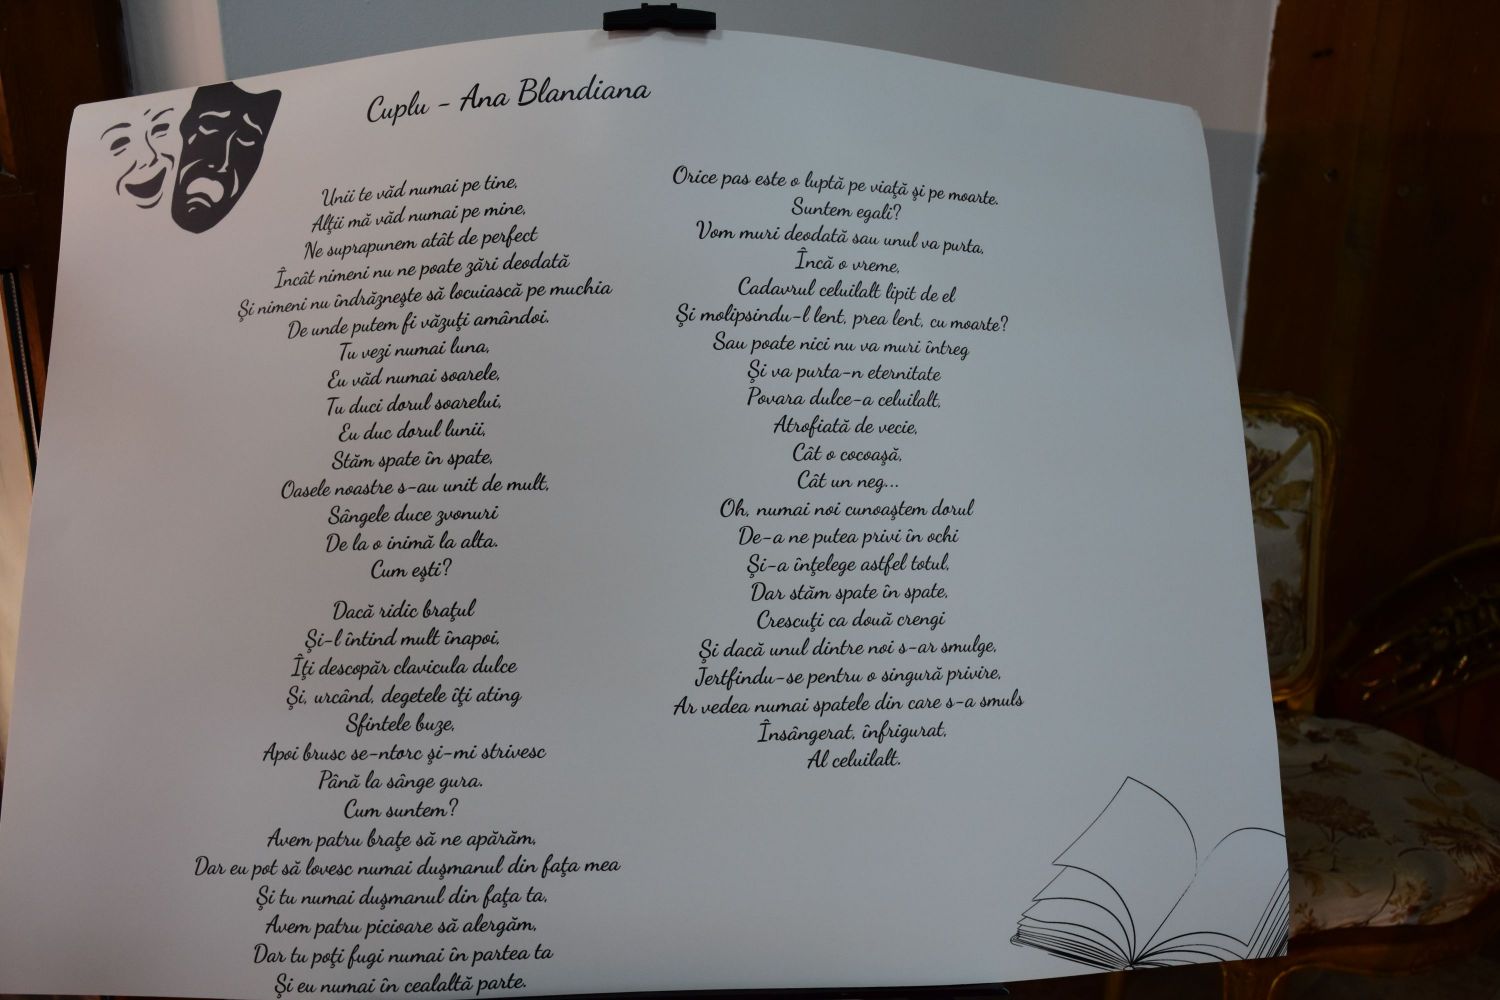 Cuplu - Ana Blandiana
Unii te văd numai pe tine,
Alţii mă văd numai pe mine,
Ne suprapunem atât de perfect
Încât nimeni nu ne poate zări deodată
Şi nimeni nu îndrăzneşte să locuiască pe muchia
De unde putem fi văzuţi amândoi.
Tu vezi numai luna,
Eu văd numai soarele,
Tu duci dorul soarelui,
Eu duc dorul lunii,
Stăm spate în spate,
Oasele noastre s-au unit de mult,
Sângele duce zvonuri
De la o inimă la alta.
Cum eşti?
Dacă ridic braţul
Şi-l întind mult înapoi,
Îţi descopăr clavicula dulce
Şi, urcând, degetele îţi ating
Sfintele buze,
Apoi brusc se-ntorc şi-mi strivesc
Până la sânge gura.
Cum suntem?
Avem patru braţe să ne apărăm,
Dar eu pot să lovesc numai duşmanul din faţa mea
Şi tu numai duşmanul din faţa ta,
Avem patru picioare să alergăm,
Dar tu poţi fugi numai în partea ta
Şi eu numai în cealaltă parte.
Orice pas este o luptă pe viaţă şi pe moarte.
Suntem egali?
Vom muri deodată sau unul va purta,
Încă o vreme,
Cadavrul celuilalt lipit de el
Şi molipsindu-l lent, prea lent, cu moarte?
Sau poate nici nu va muri întreg
Şi va purta-n eternitate
Povara dulce-a celuilalt,
Atrofiată de vecie,
Cât o cocoaşă,
Cât un neg...
Oh, numai noi cunoaştem dorul
De-a ne putea privi în ochi
Şi-a înţelege astfel totul,
Dar stăm spate în spate,
Crescuţi ca două crengi
Şi dacă unul dintre noi s-ar smulge,
Jertfindu-se pentru o singură privire,
Ar vedea numai spatele din care s-a smuls
Însângerat, înfrigurat,
Al celuilalt.